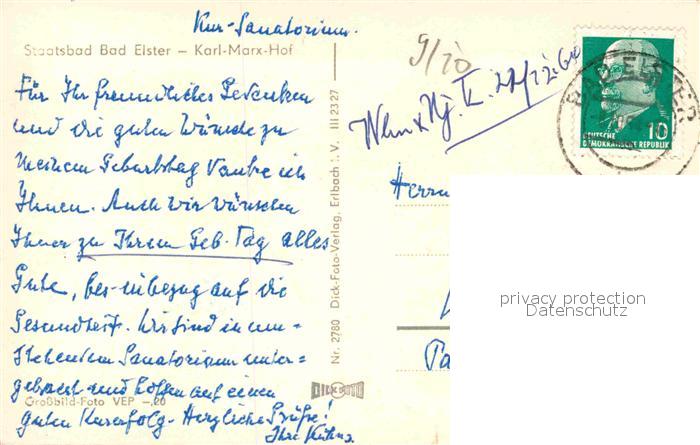 Kur-Sanatorium.
Staatsbad Bad Elster – Karl-Marx-Hof
Für Ihr freundliches Gedenken
und die guten Wünsche zu
meinem Geburtstag danke ich
Ihnen. Auch wir wünschen
Ihnen zu Ihrem Geb. Tag alles
Gute, bes. inbezug auf die
Gesundheit. Wir sind in um=
stehendem Sanatorium unter=
gebracht und hoffen auf einen
Großbild-Foto VEP –.20
guten Kurerfolg. Herzliche Grüße!
Ihre
Nr. 2780 Dick-Foto-Verlag, Erlbach i. V. III 23 27
DICK FOTO
9/70
22/12.60
BAD ELSTER
10
DEUTSCHE
DEMOKRATISCHE REPUBLIK
Herrn
privacy protection
Datenschutz